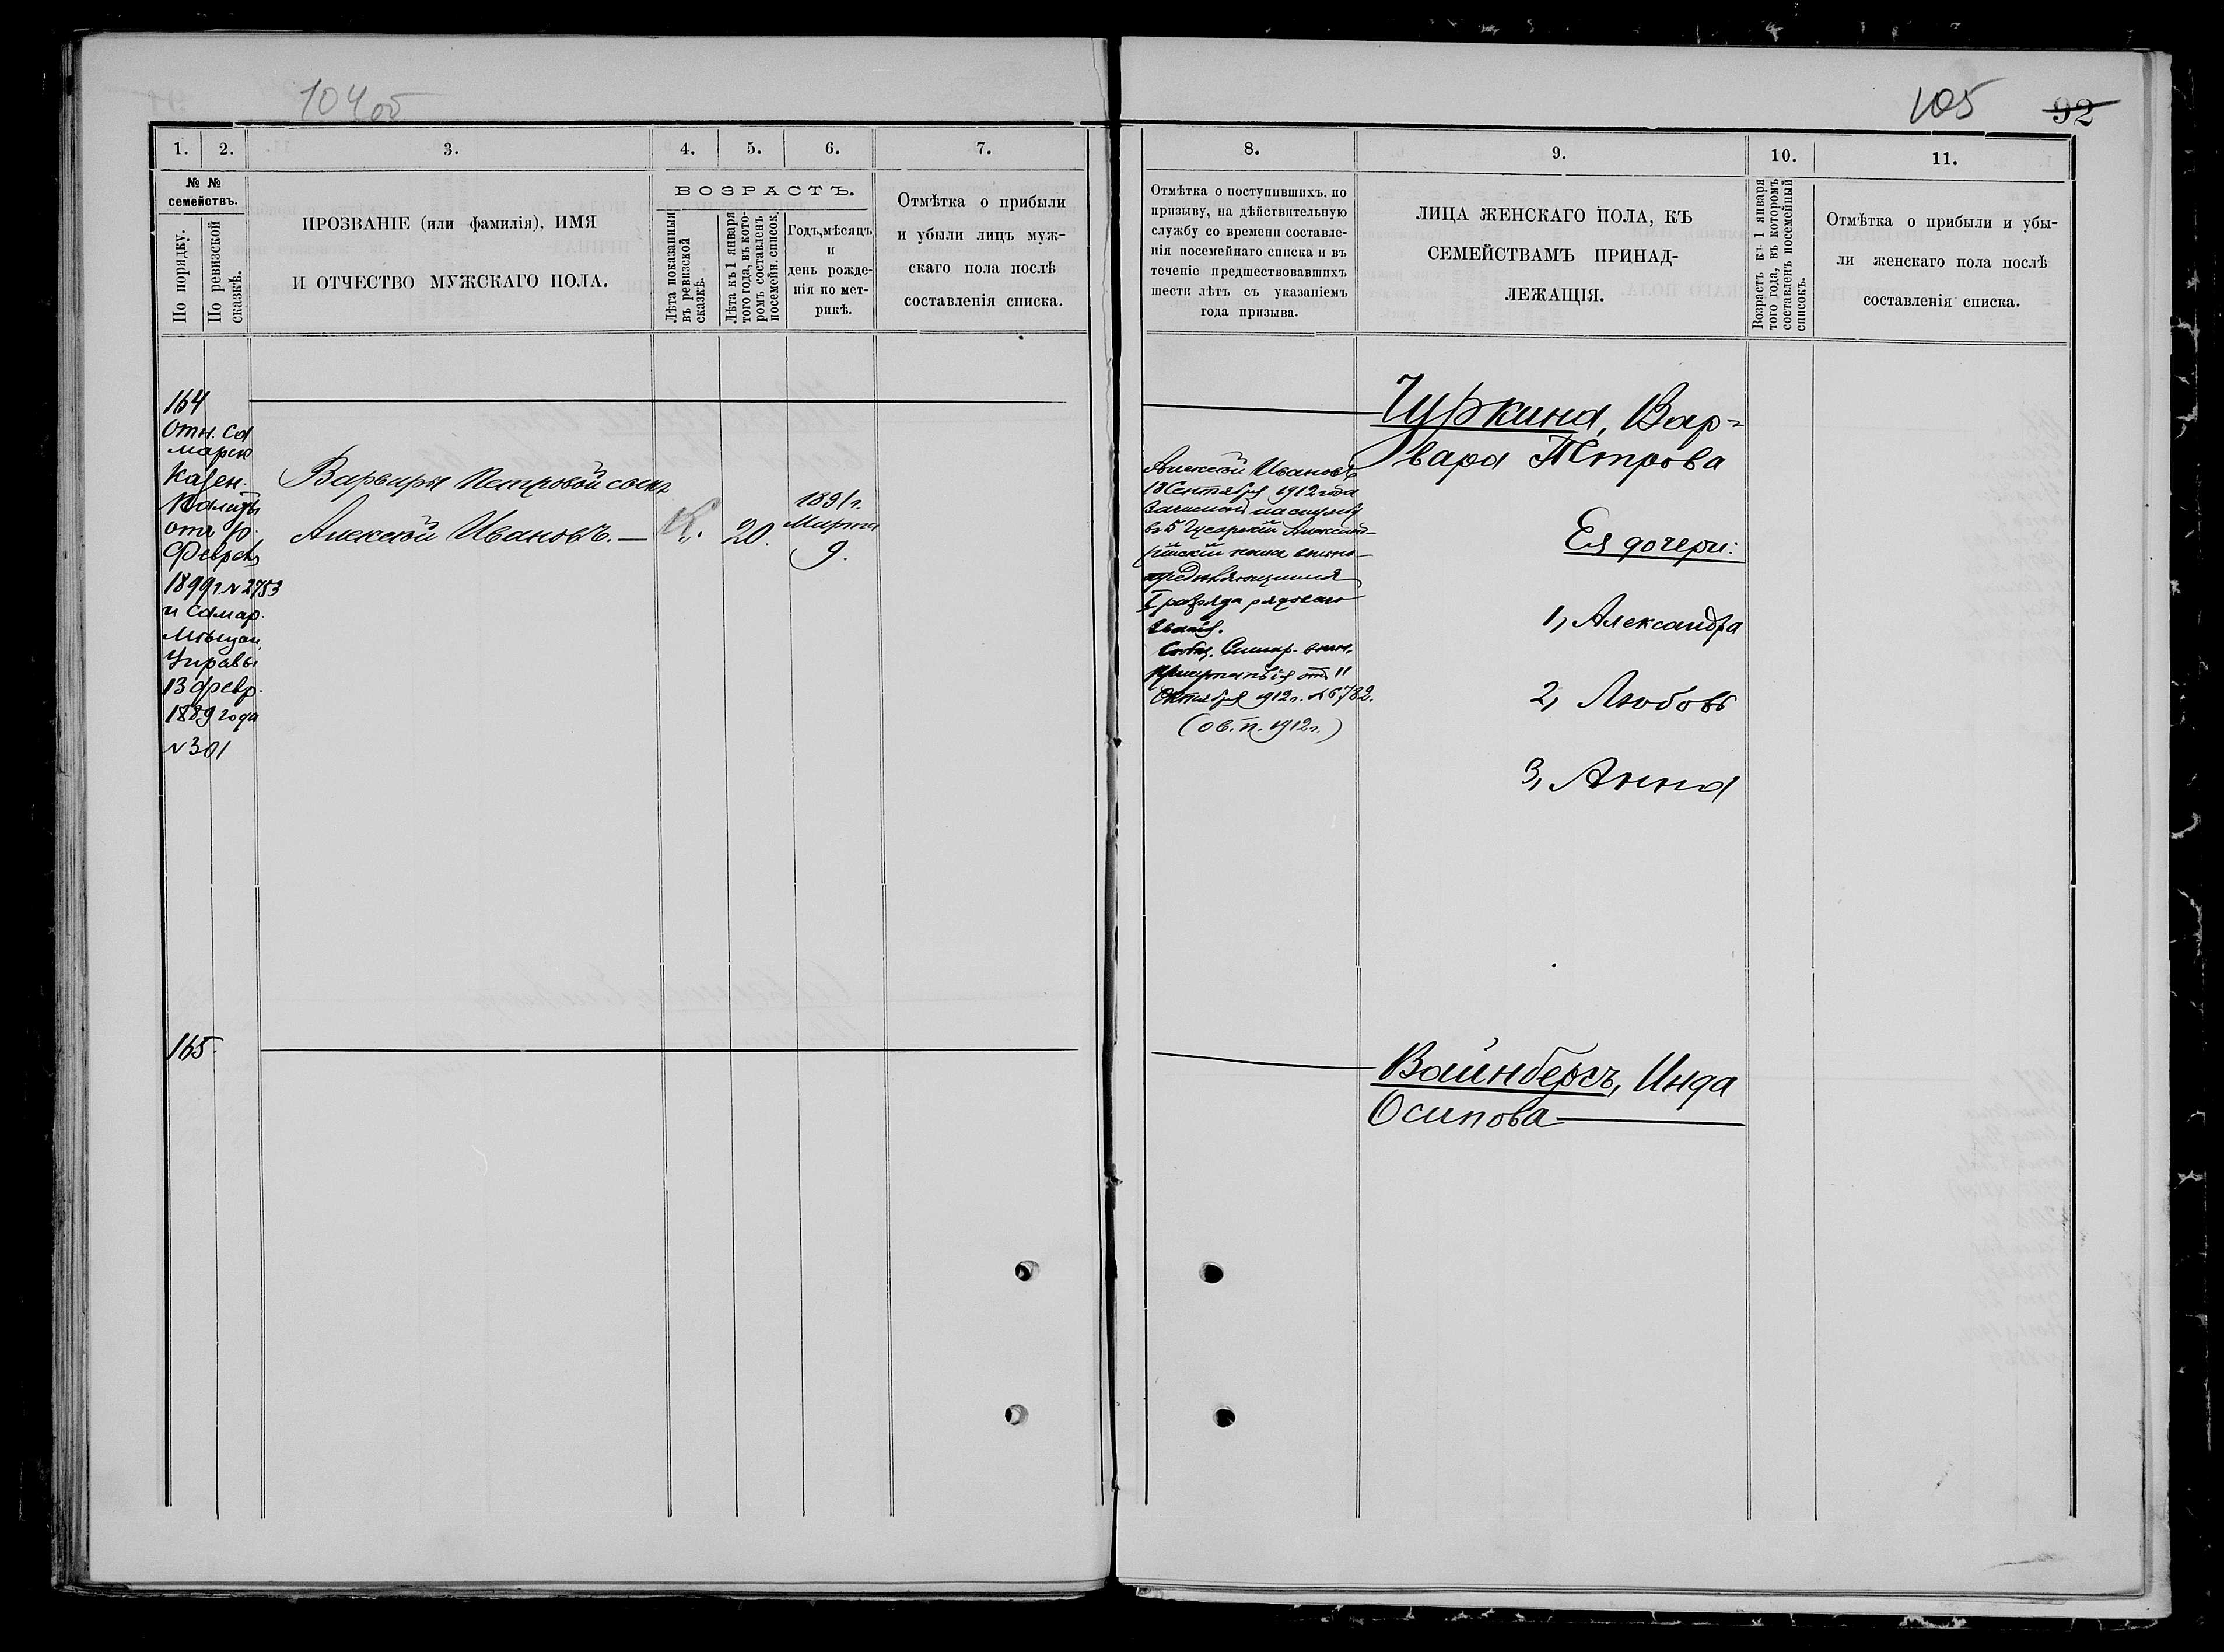 104 об
1.
2.
3.
4.
5.
6.
7.
№ №
семействъ.
По порядку.
По ревизской
сказкѣ.
ПРОЗВАНІЕ (или фамилія), ИМЯ
И ОТЧЕСТВО МУЖСКАГО ПОЛА.
ВОЗРАСТЪ.
Лѣта показанныя
въ ревизской
сказкѣ.
Лѣта къ 1 января
того года, въ кото-
ромъ составленъ
посемейн. списокъ.
Годъ, мѣсяцъ
и
день рожде-
нія по мет-
рикѣ.
Отмѣтка о прибыли
и убыли лицъ муж-
скаго пола послѣ
составленія списка.
164
Отн. Са
марск
Казен.
Палаты
отъ 10
Февраля
1899 г. № 2753
и Самар.
Мѣщан.
Управы
13 февр.
1889 года
№ 301
Варвары Петровой сынъ
Алексѣй Ивановъ. —
К.
20.
1891 г.
Марта
9.
165.
105
92
8.
9.
10.
11.
Отмѣтка о поступившихъ, по
призыву, на дѣйствительную
службу со времени составле-
нія посемейнаго списка и въ
теченіе предшествовавшихъ
шести лѣтъ съ указаніемъ
года призыва.
ЛИЦА ЖЕНСКАГО ПОЛА, КЪ
СЕМЕЙСТВАМЪ ПРИНАД-
ЛЕЖАЩІЯ.
Возрастъ къ 1 января
того года, въ которомъ
составленъ посемейный
списокъ.
Отмѣтка о прибыли и убы-
ли женскаго пола послѣ
составленія списка.
Алексѣй Ивановъ
18 Сентября 1912 года
Зачисленъ на службу
въ 5 Гусарскій Александ-
рійскій полкъ вольно-
опредѣляющимся
I разряда рядового
званія.
Сообщ. Самар. воин.
присутствія отъ 11
Октября 1912 г. № 6782.
(ов. п. 1912 г.)
Чуркина, Вар-
вара Петрова
Ея дочери:
1, Александра
2, Любовь
3, Анна
Вайнбергъ, Инда
Осипова